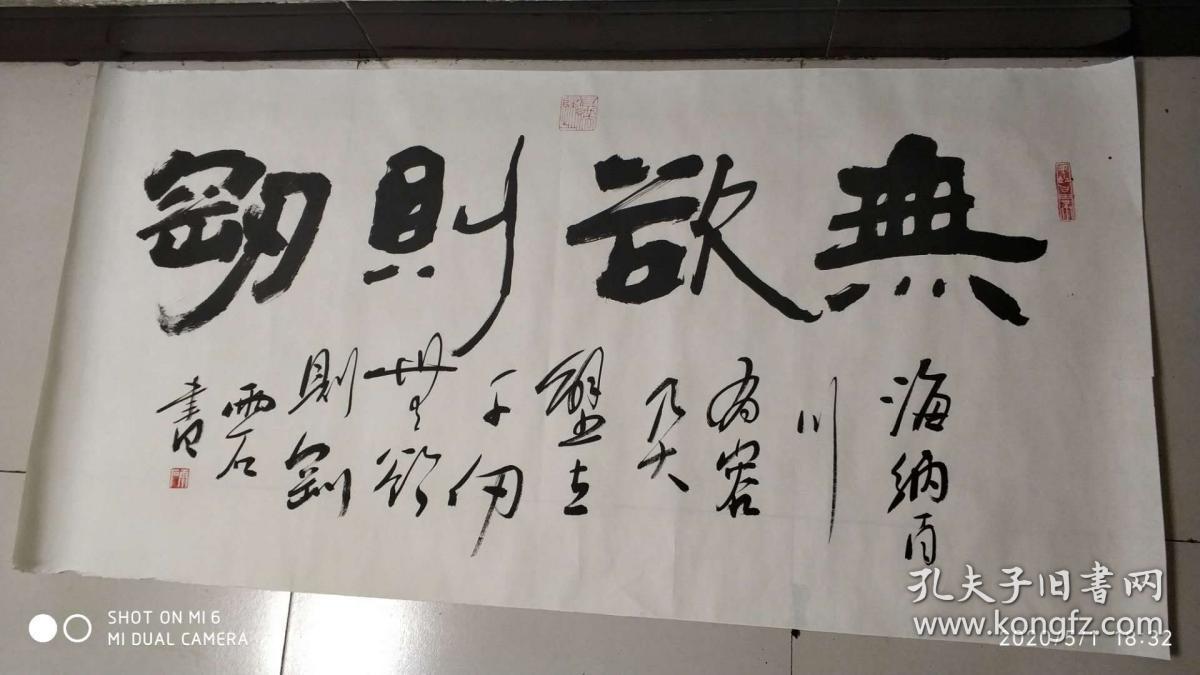 無欲則剛
海納百
川
有容
乃大
壁立
千仞
無欲
則剛
雲石
書
孔夫子旧書网
www.kongfz.com
SHOT ON MI 6
MI DUAL CAMERA
2020/5/1 18:32